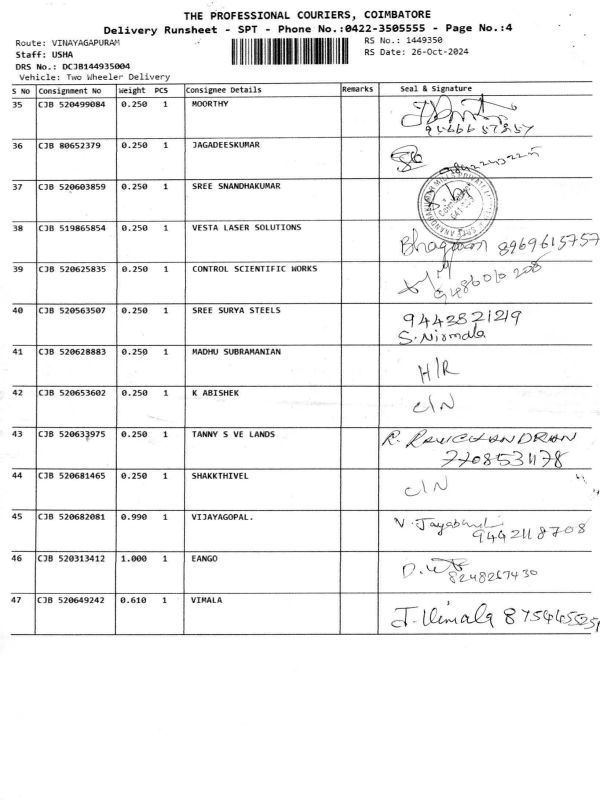 THE PROFESSIONAL COURIERS, COIMBATORE
Delivery Runsheet - SPT - Phone No.:0422-3505555 - Page No.:4
Route: VINAYAGAPURAM
RS No.: 1449350
Staff: USHA
RS Date: 26-Oct-2024
DRS No.: DCJB144935004
Vehicle: Two Wheeler Delivery
S No Consignment No Weight PCS Consignee Details Remarks Seal & Signature
35 CJB 520499084 0.250 1 MOORTHY
36 CJB 80652379 0.250 1 JAGADEESKUMAR
37 CJB 520603859 0.250 1 SREE SNANDHAKUMAR
38 CJB 519865854 0.250 1 VESTA LASER SOLUTIONS
8969615757
39 CJB 520625835 0.250 1 CONTROL SCIENTIFIC WORKS
40 CJB 520563507 0.250 1 SREE SURYA STEELS
9443821219
S. Nirmala
41 CJB 520628883 0.250 1 MADHU SUBRAMANIAN
H/R
42 CJB 520653602 0.250 1 K ABISHEK
C/N
43 CJB 520633975 0.250 1 TANNY S VE LANDS
7708531178
44 CJB 520681465 0.250 1 SHAKKTHIVEL
C/N
45 CJB 520682081 0.990 1 VIJAYAGOPAL.
9442118708
46 CJB 520313412 1.000 1 EANGO
8248267430
47 CJB 520649242 0.610 1 VIMALA
J. Vimala